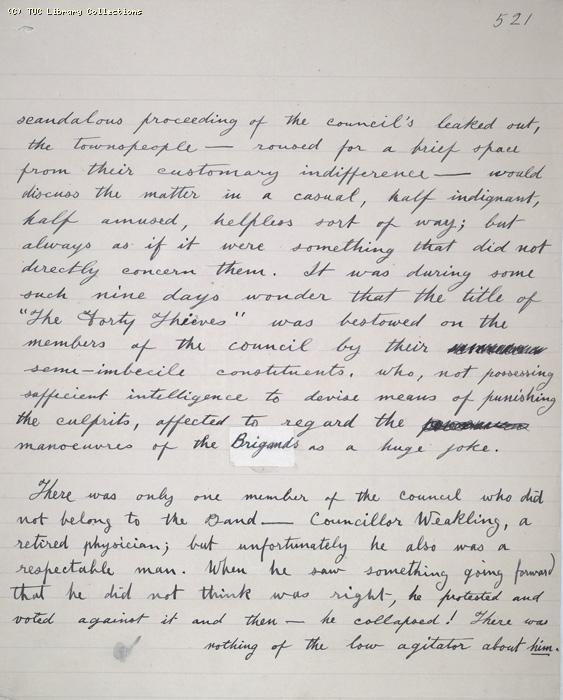 (C) TUC Library Collections
521
scandalous proceeding of the council's leaked out,
the townspeople — roused for a brief space
from their customary indifference — would
discuss the matter in a casual, half indignant,
half amused, helpless sort of way; but
always as if it were something that did not
directly concern them. It was during some
such nine days wonder that the title of
"The Forty Thieves" was bestowed on the
members of the council by their
semi-imbecile constituents. who, not possessing
sufficient intelligence to devise means of punishing
the culprits, affected to regard the
manoeuvres of the Brigands as a huge joke.
There was only one member of the council who did
not belong to the Band — Councillor Weakling, a
retired physician; but unfortunately he also was a
respectable man. When he saw something going forward
that he did not think was right, he protested and
voted against it and then — he collapsed! There was
nothing of the low agitator about him.